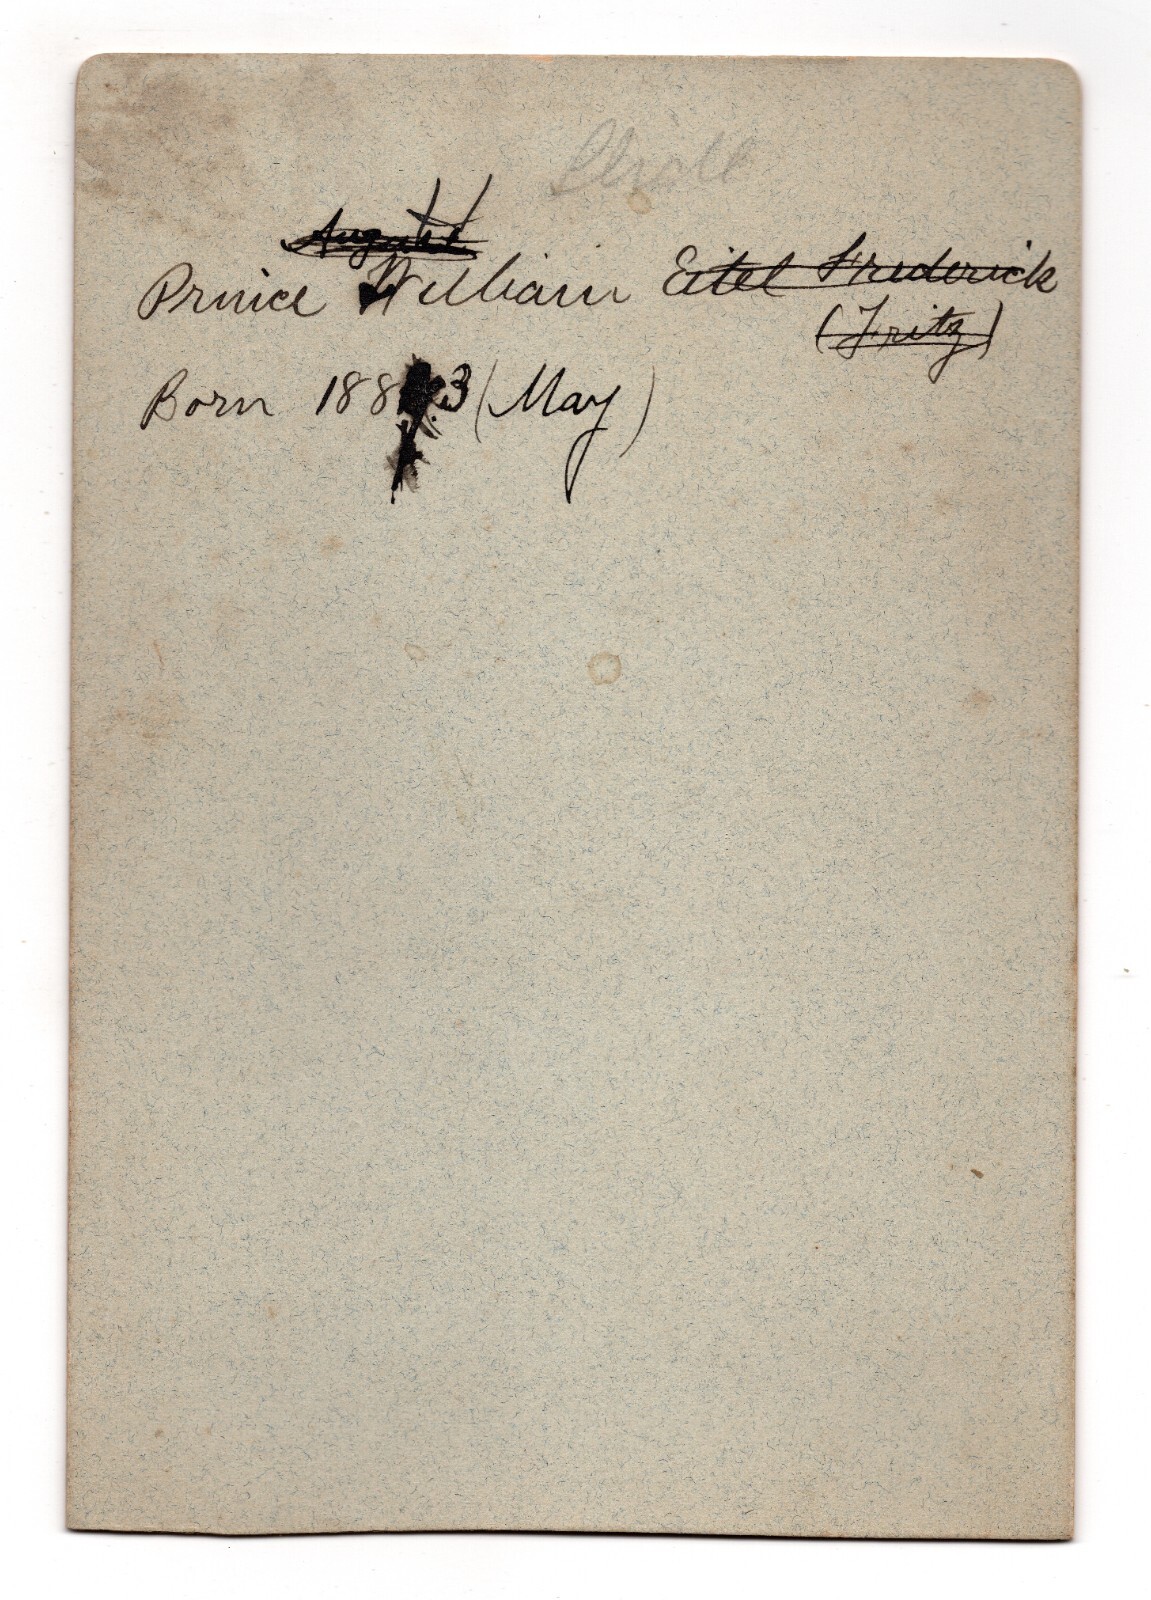 August
Prince William Eitel Frederick
(Fritz)
Born 188 3 (May)